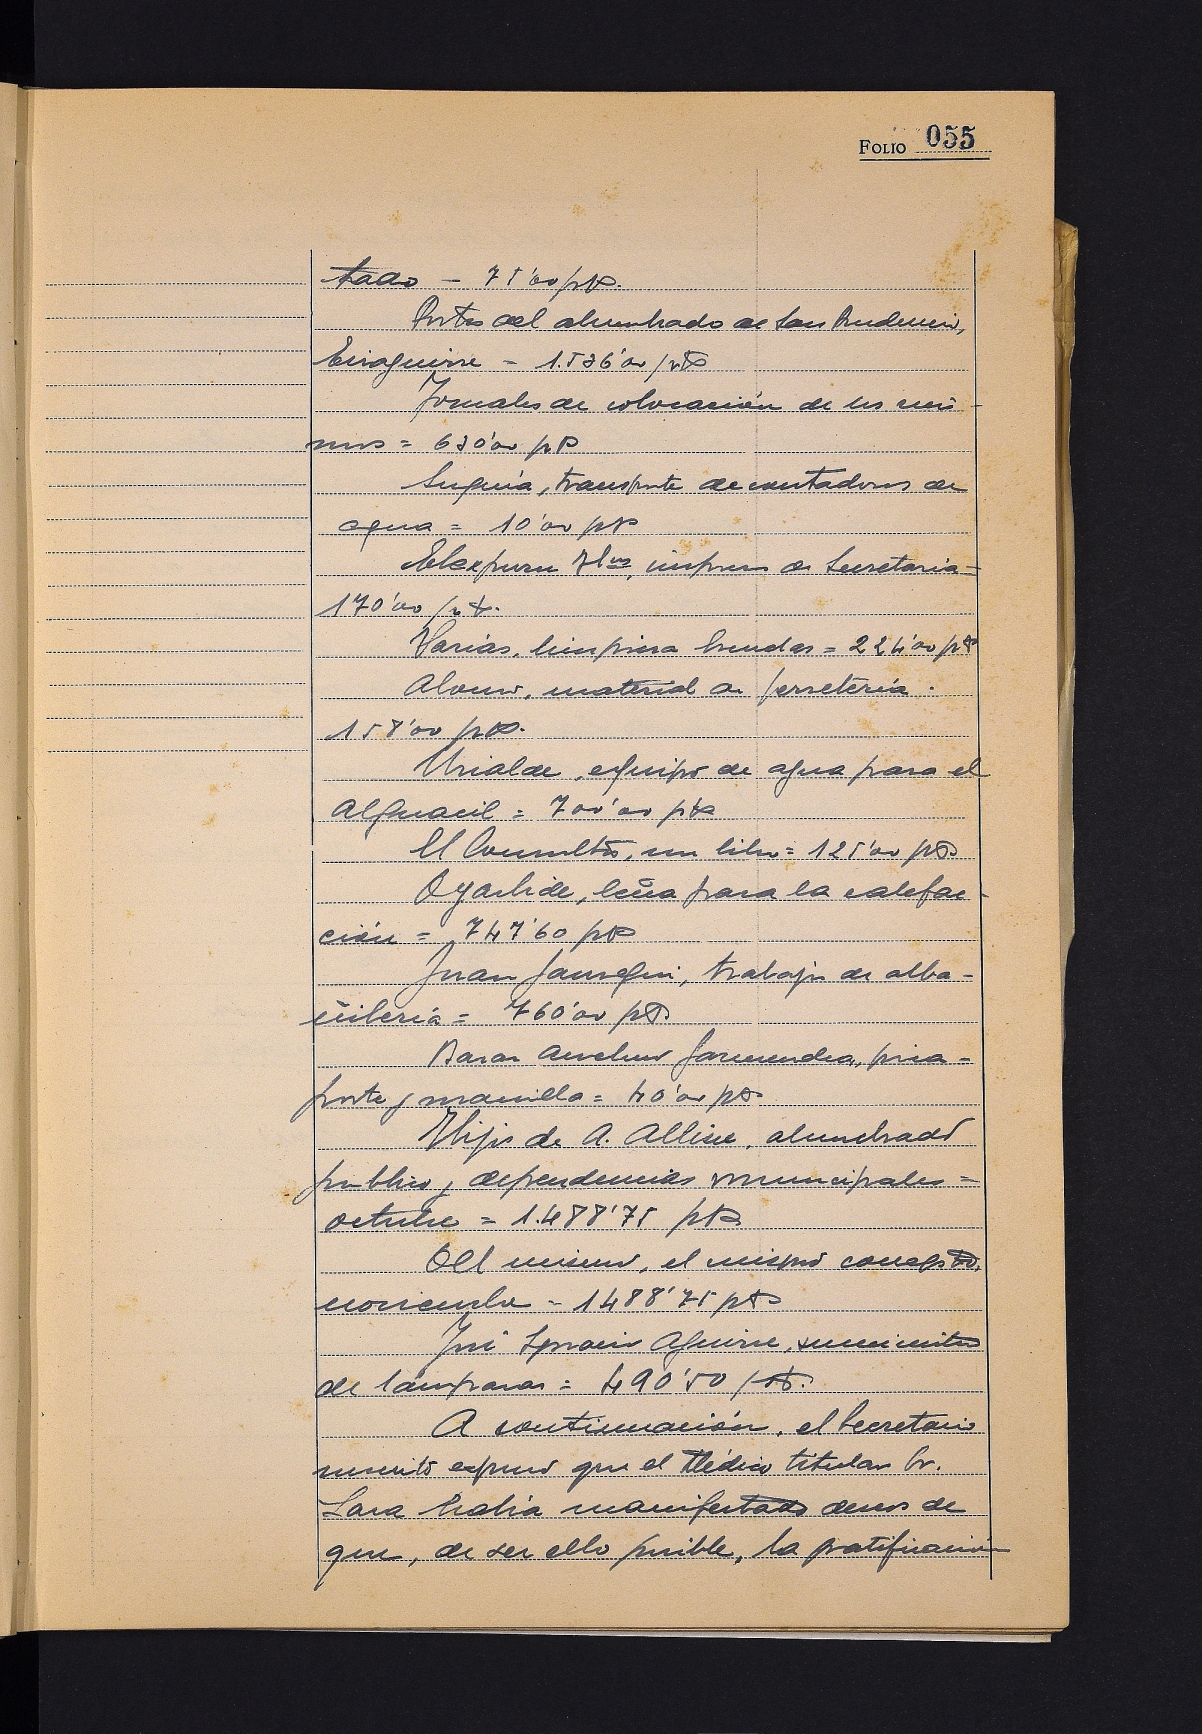 FOLIO 055
tado - 75'00 pts.
Postes del alumbrado de San Prudencio,
Eizaguirre - 1.536'00 pts
Jornales de colocación de los mis-
mos = 630'00 pts
Suquía, transporte de contadores de
agua = 10'00 pts
Elexpuru Hnos, impresos de Secretaría =
170'00 pts.
Varias, limpieza = 224'00 pts
Alonso, material de ferretería.
158'00 pts.
Urialde, equipo de agua para el
Alguacil = 700'00 pts
El Consultor, un libro = 125'00 pts
Oyarbide, leña para la calefac-
ción = 747'60 pts
Juan Jauregui, trabajos de alba-
ñilería = 760'00 pts
Bazar Anselmo Garmendia, pica-
porte y manilla = 40'00 pts
Hijos de A. Allise, alumbrado
público y dependencias municipales =
octubre = 1.488'75 pts
Del mismo, el mismo concepto,
noviembre - 1488'75 pts
José Ignacio Aguirre, suministros
de lámparas = 490'50 pts.
A continuación, el Secretario
suscrito expuso que el Médico titular Sr.
Lasa había manifestado deseos de
que, de ser ello posible, la gratificación